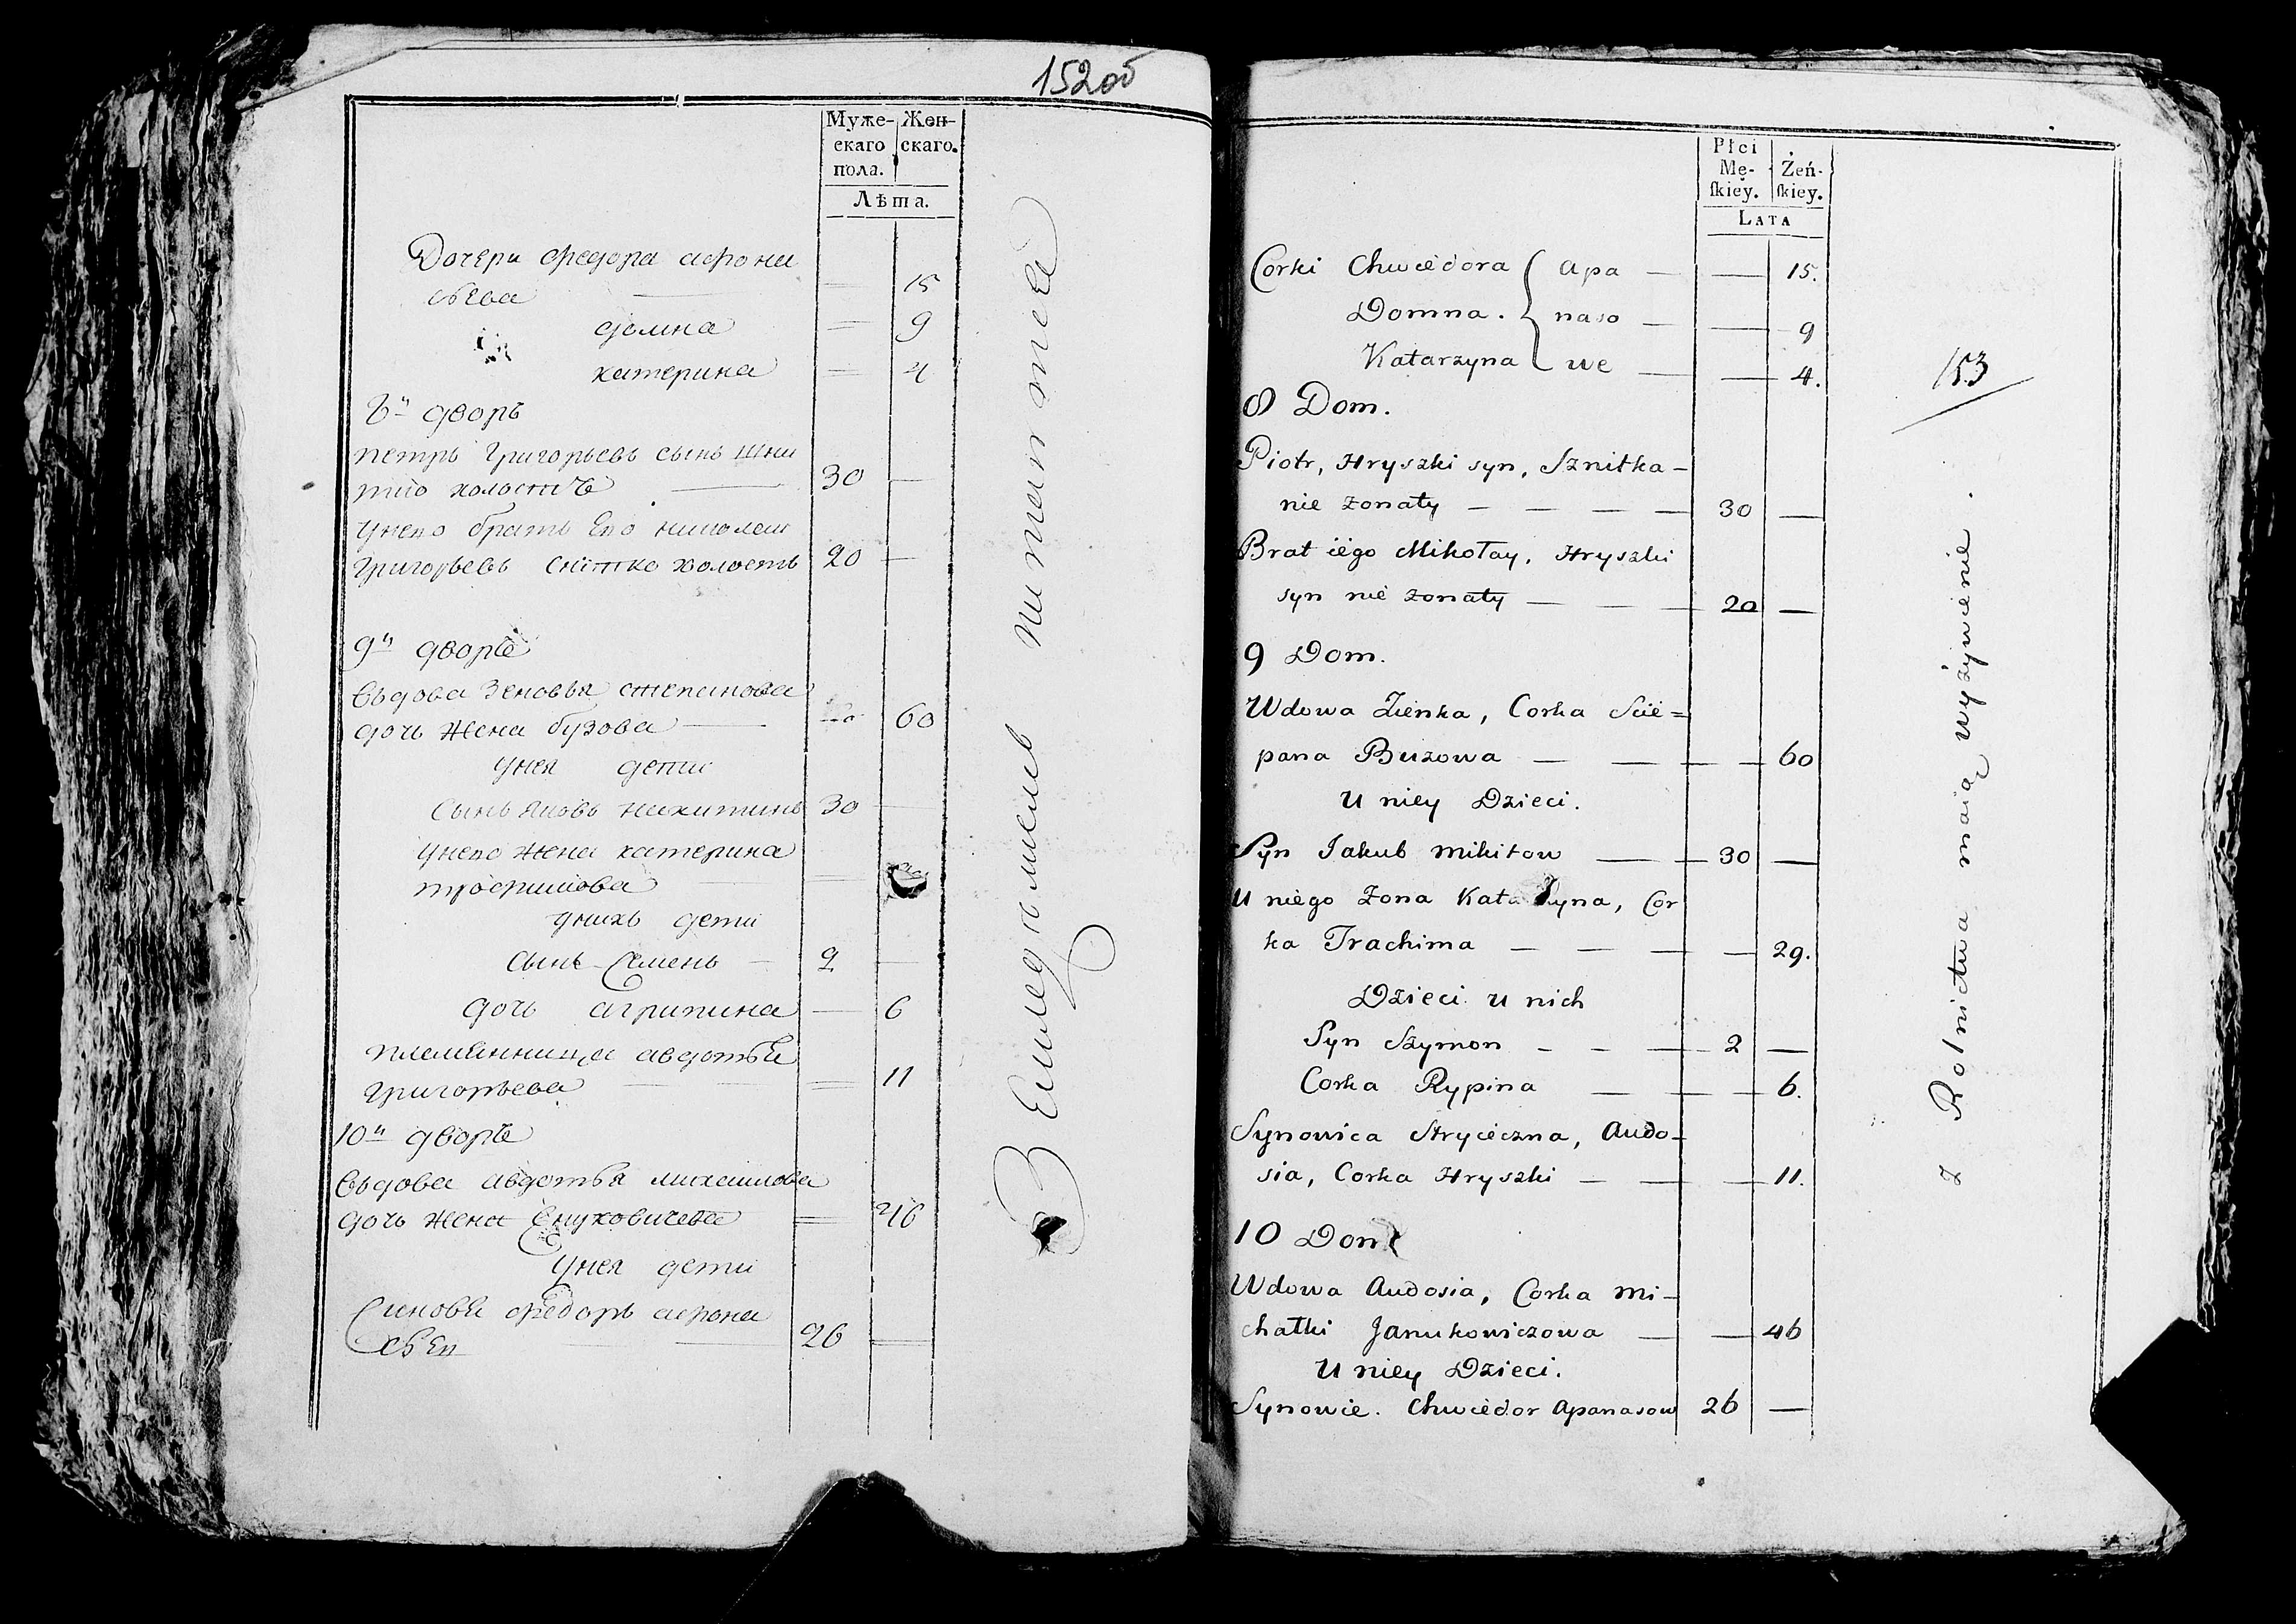 152 об
Муже- Жен-
скаго скаго.
пола.
Лѣта.
Дочери федора афона
сьева 15
домна 9
катерина 4
8й дворъ
петръ Григорьевъ сынъ шни
тко холостъ 30 —
унего братъ Его николаи
Григорьевъ снітко холостъ 20 —
9й дворъ
Вьдова Зеновья степанова
дочь жена бузова — 60
унея дети
сынъ яковъ никитинъ 30 —
унего жена катерина
трофимова
унихъ дети
сынъ Семенъ — 2 —
дочь агрипина — 6
племянница авдотья
Григорьева 11
10й дворъ
Вьдова авдотья михаилова
дочь жена Енуковичева 46
Унея дети
Синовья федоръ афона
сьеи 26
Земледелиемъ питаитиея
Płci
Mę- Żeń-
ſkiey. ſkiey.
LATA
Corki Chwiedora apa — — 15.
Domna. naso — — 9
Katarzyna we — — 4.
153
8 Dom.
Piotr, Hryszki syn, Sznitka-
nie żonaty — — — — 30 —
Brat iego Mikołay, Hryszki
syn nie żonaty — — — 20 —
9 Dom.
Wdowa Zienka, Corka Scie=
pana Buzowa — — — — 60
U niey Dzieci.
Syn Jakub Mikitow — — 30 —
U niego Żona Katarzyna, Cor
ka Trachima — — — — 29.
Dzieci u nich
Syn Szymon — — — 2 —
Corka Rypina — — — 6.
Synowica Stryieczna, Audo-
sia, Corka Hryszki — — — 11.
10 Dom
Wdowa Audosia, Corka Mi-
chałki Janukowiczowa — — 46
U niey Dzieci.
Synowie. Chwiedor Apanasow 26 —
z Rolnictwa maią wyżywienie.